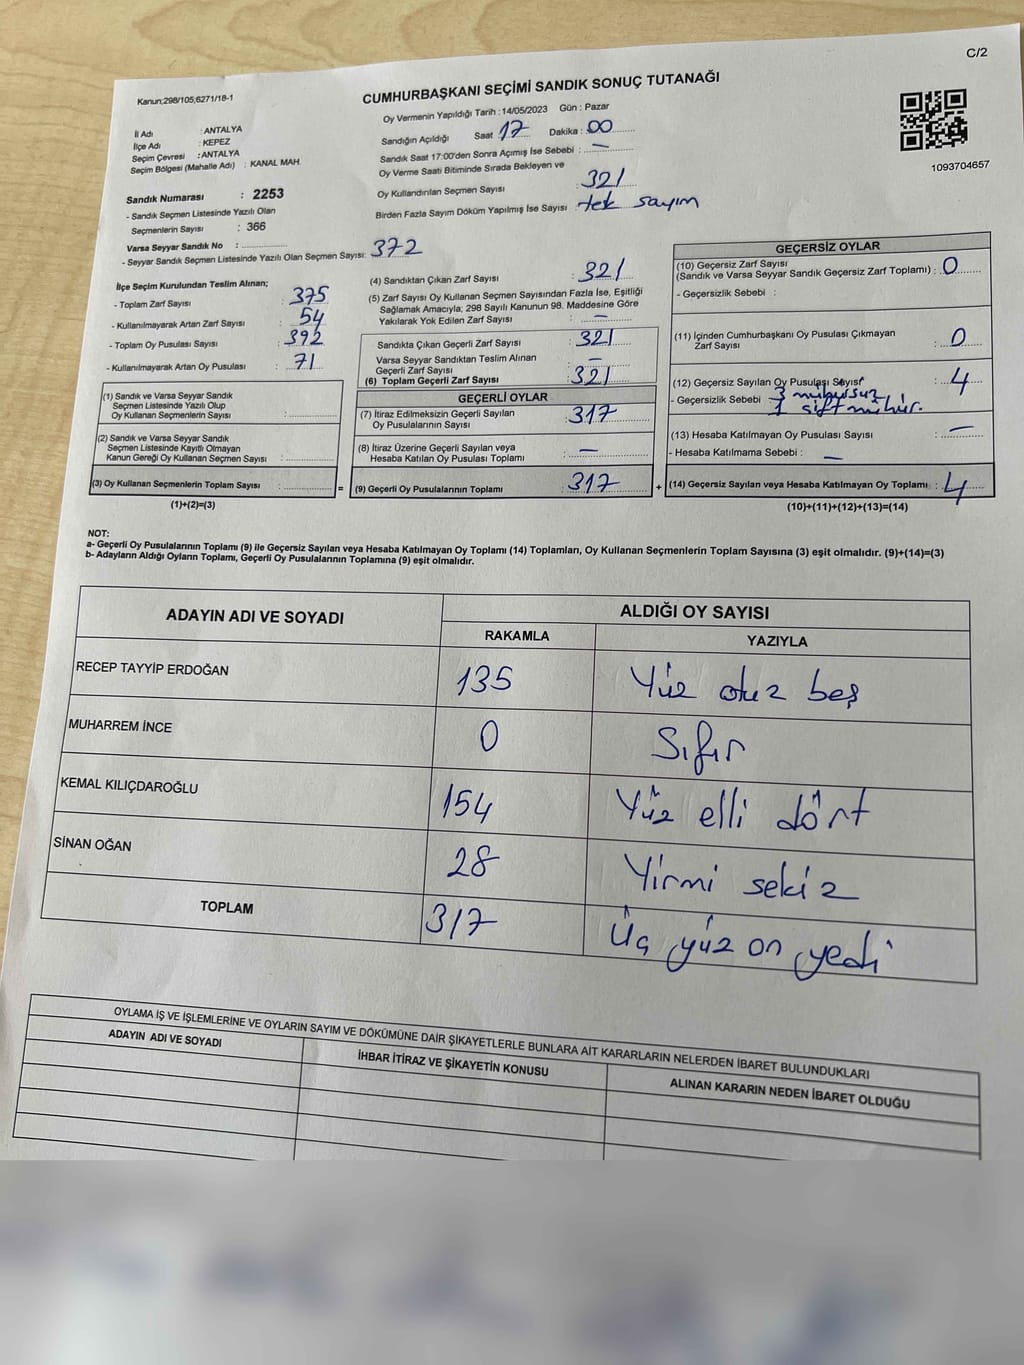 C/2
Kanun;298/105;6271/18-1
CUMHURBAŞKANI SEÇİMİ SANDIK SONUÇ TUTANAĞI
Oy Vermenin Yapıldığı Tarih : 14/05/2023 Gün : Pazar
İl Adı : ANTALYA
İlçe Adı : KEPEZ
Seçim Çevresi : ANTALYA
Seçim Bölgesi (Mahalle Adı) : KANAL MAH.
Sandığın Açıldığı Saat 17 Dakika : 00
Sandık Saat 17:00'den Sonra Açımış İse Sebebi : —
Oy Verme Saati Bitiminde Sırada Bekleyen ve
Oy Kullandırılan Seçmen Sayısı 321
Birden Fazla Sayım Döküm Yapılmış İse Sayısı tek sayım
1093704657
Sandık Numarası : 2253
- Sandık Seçmen Listesinde Yazılı Olan
Seçmenlerin Sayısı : 366
Varsa Seyyar Sandık No :
- Seyyar Sandık Seçmen Listesinde Yazılı Olan Seçmen Sayısı: 372
İlçe Seçim Kurulundan Teslim Alınan;
- Toplam Zarf Sayısı : 375
- Kullanılmayarak Artan Zarf Sayısı : 54
- Toplam Oy Pusulası Sayısı : 392
- Kullanılmayarak Artan Oy Pusulası : 71
(1) Sandık ve Varsa Seyyar Sandık
Seçmen Listesinde Yazılı Olup
Oy Kullanan Seçmenlerin Sayısı :
(2) Sandık ve Varsa Seyyar Sandık
Seçmen Listesinde Kayıtlı Olmayan
Kanun Gereği Oy Kullanan Seçmen Sayısı :
(3) Oy Kullanan Seçmenlerin Toplam Sayısı :
(1)+(2)=(3)
=
(4) Sandıktan Çıkan Zarf Sayısı : 321
(5) Zarf Sayısı Oy Kullanan Seçmen Sayısından Fazla İse, Eşitliği
Sağlamak Amacıyla; 298 Sayılı Kanunun 98. Maddesine Göre
Yakılarak Yok Edilen Zarf Sayısı : —
Sandıkta Çıkan Geçerli Zarf Sayısı : 321
Varsa Seyyar Sandıktan Teslim Alınan
Geçerli Zarf Sayısı : —
(6) Toplam Geçerli Zarf Sayısı : 321
GEÇERLİ OYLAR
(7) İtiraz Edilmeksizin Geçerli Sayılan
Oy Pusulalarının Sayısı : 317
(8) İtiraz Üzerine Geçerli Sayılan veya
Hesaba Katılan Oy Pusulası Toplamı : —
(9) Geçerli Oy Pusulalarının Toplamı : 317
+
GEÇERSİZ OYLAR
(10) Geçersiz Zarf Sayısı
(Sandık ve Varsa Seyyar Sandık Geçersiz Zarf Toplamı) : 0
- Geçersizlik Sebebi :
(11) İçinden Cumhurbaşkanı Oy Pusulası Çıkmayan
Zarf Sayısı : 0
(12) Geçersiz Sayılan Oy Pusulası Sayısı : 4
- Geçersizlik Sebebi 3 mühürsüz
1 çift mühür.
(13) Hesaba Katılmayan Oy Pusulası Sayısı : —
- Hesaba Katılmama Sebebi : —
(14) Geçersiz Sayılan veya Hesaba Katılmayan Oy Toplamı : 4
(10)+(11)+(12)+(13)=(14)
NOT:
a- Geçerli Oy Pusulalarının Toplamı (9) ile Geçersiz Sayılan veya Hesaba Katılmayan Oy Toplamı (14) Toplamları, Oy Kullanan Seçmenlerin Toplam Sayısına (3) eşit olmalıdır. (9)+(14)=(3)
b- Adayların Aldığı Oyların Toplamı, Geçerli Oy Pusulalarının Toplamına (9) eşit olmalıdır.
ADAYIN ADI VE SOYADI ALDIĞI OY SAYISI
RAKAMLA YAZIYLA
RECEP TAYYİP ERDOĞAN 135 Yüz otuz beş
MUHARREM İNCE 0 Sıfır
KEMAL KILIÇDAROĞLU 154 Yüz elli dört
SİNAN OĞAN 28 Yirmi sekiz
TOPLAM 317 Üç yüz on yedi
OYLAMA İŞ VE İŞLEMLERİNE VE OYLARIN SAYIM VE DÖKÜMÜNE DAİR ŞİKAYETLERLE BUNLARA AİT KARARLARIN NELERDEN İBARET BULUNDUKLARI
ADAYIN ADI VE SOYADI İHBAR İTİRAZ VE ŞİKAYETİN KONUSU ALINAN KARARIN NEDEN İBARET OLDUĞU